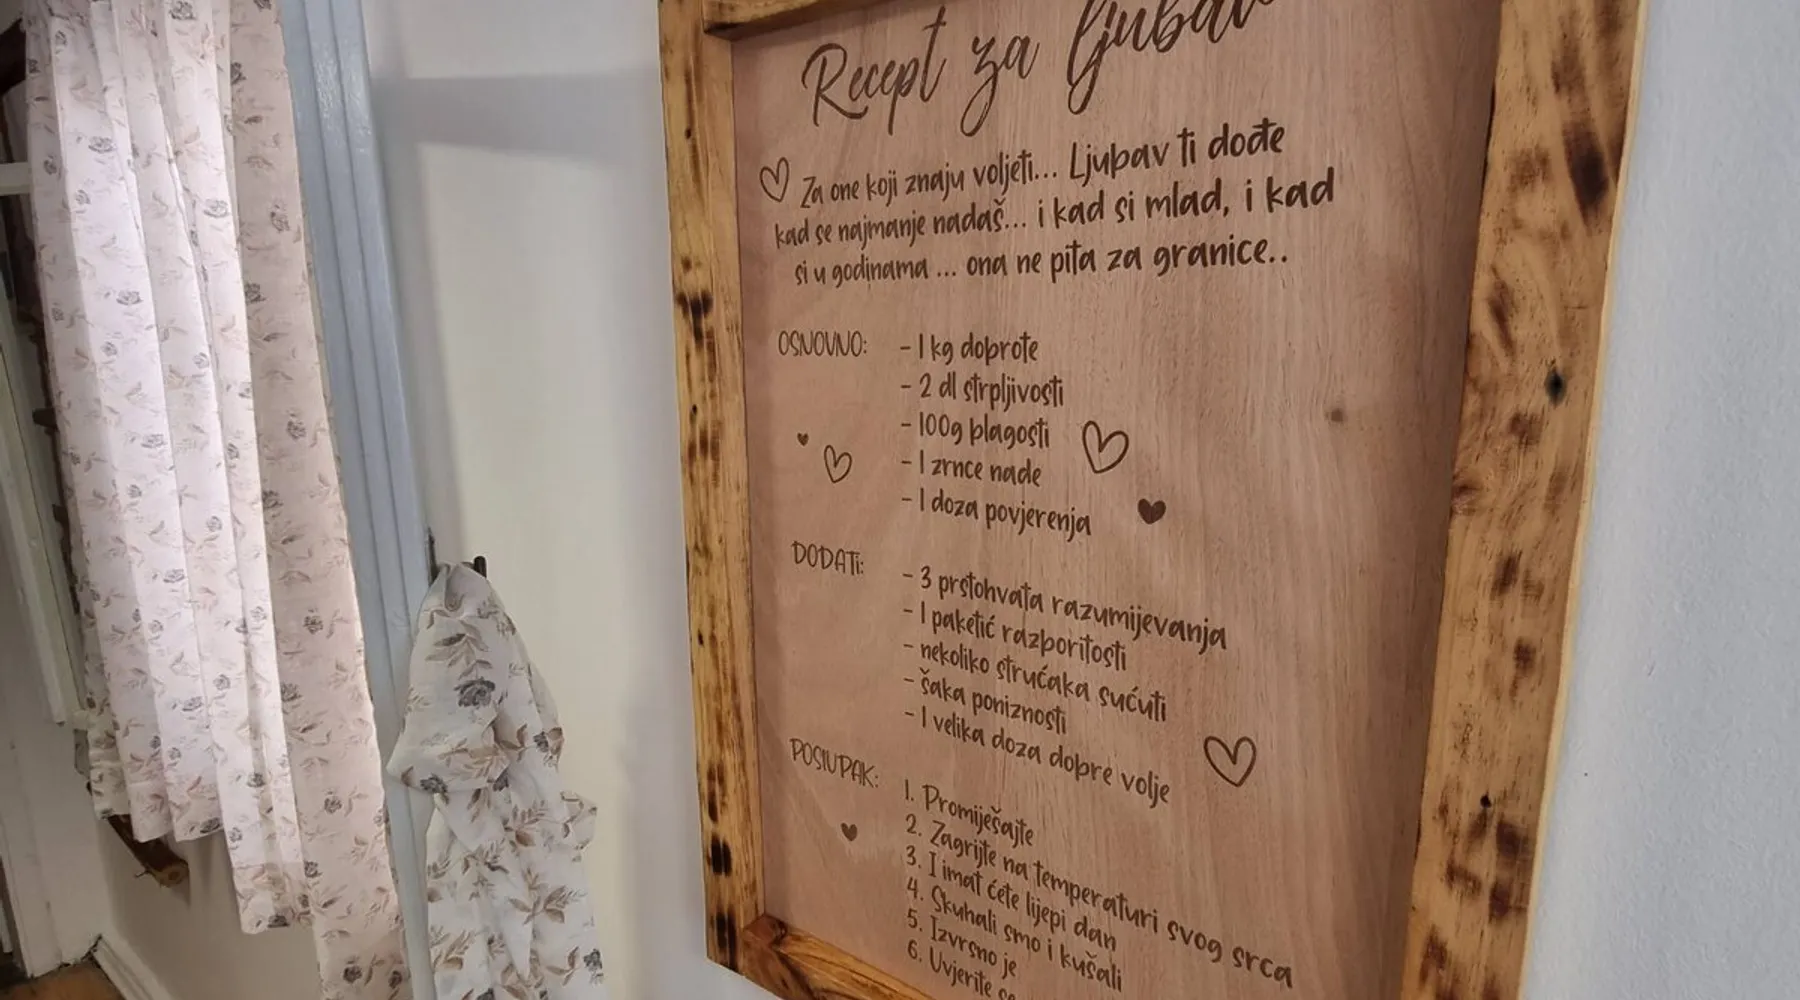 Recept za ljubav
Za one koji znaju voljeti... Ljubav ti dođe
kad se najmanje nadaš... i kad si mlad, i kad
si u godinama ... ona ne pita za granice..
OSNOVNO:
- 1 kg dobrote
- 2 dl strpljivosti
- 100g blagosti
- 1 zrnce nade
- 1 doza povjerenja
DODATI:
- 3 prstohvata razumijevanja
- 1 paketić razboritosti
- nekoliko strućaka sućuti
- šaka poniznosti
- 1 velika doza dobre volje
POSTUPAK:
1. Promiješajte
2. Zagrijte na temperaturi svog srca
3. I imat ćete lijepi dan
4. Skuhali smo i kušali
5. Izvrsno je
6. Uvjerite se